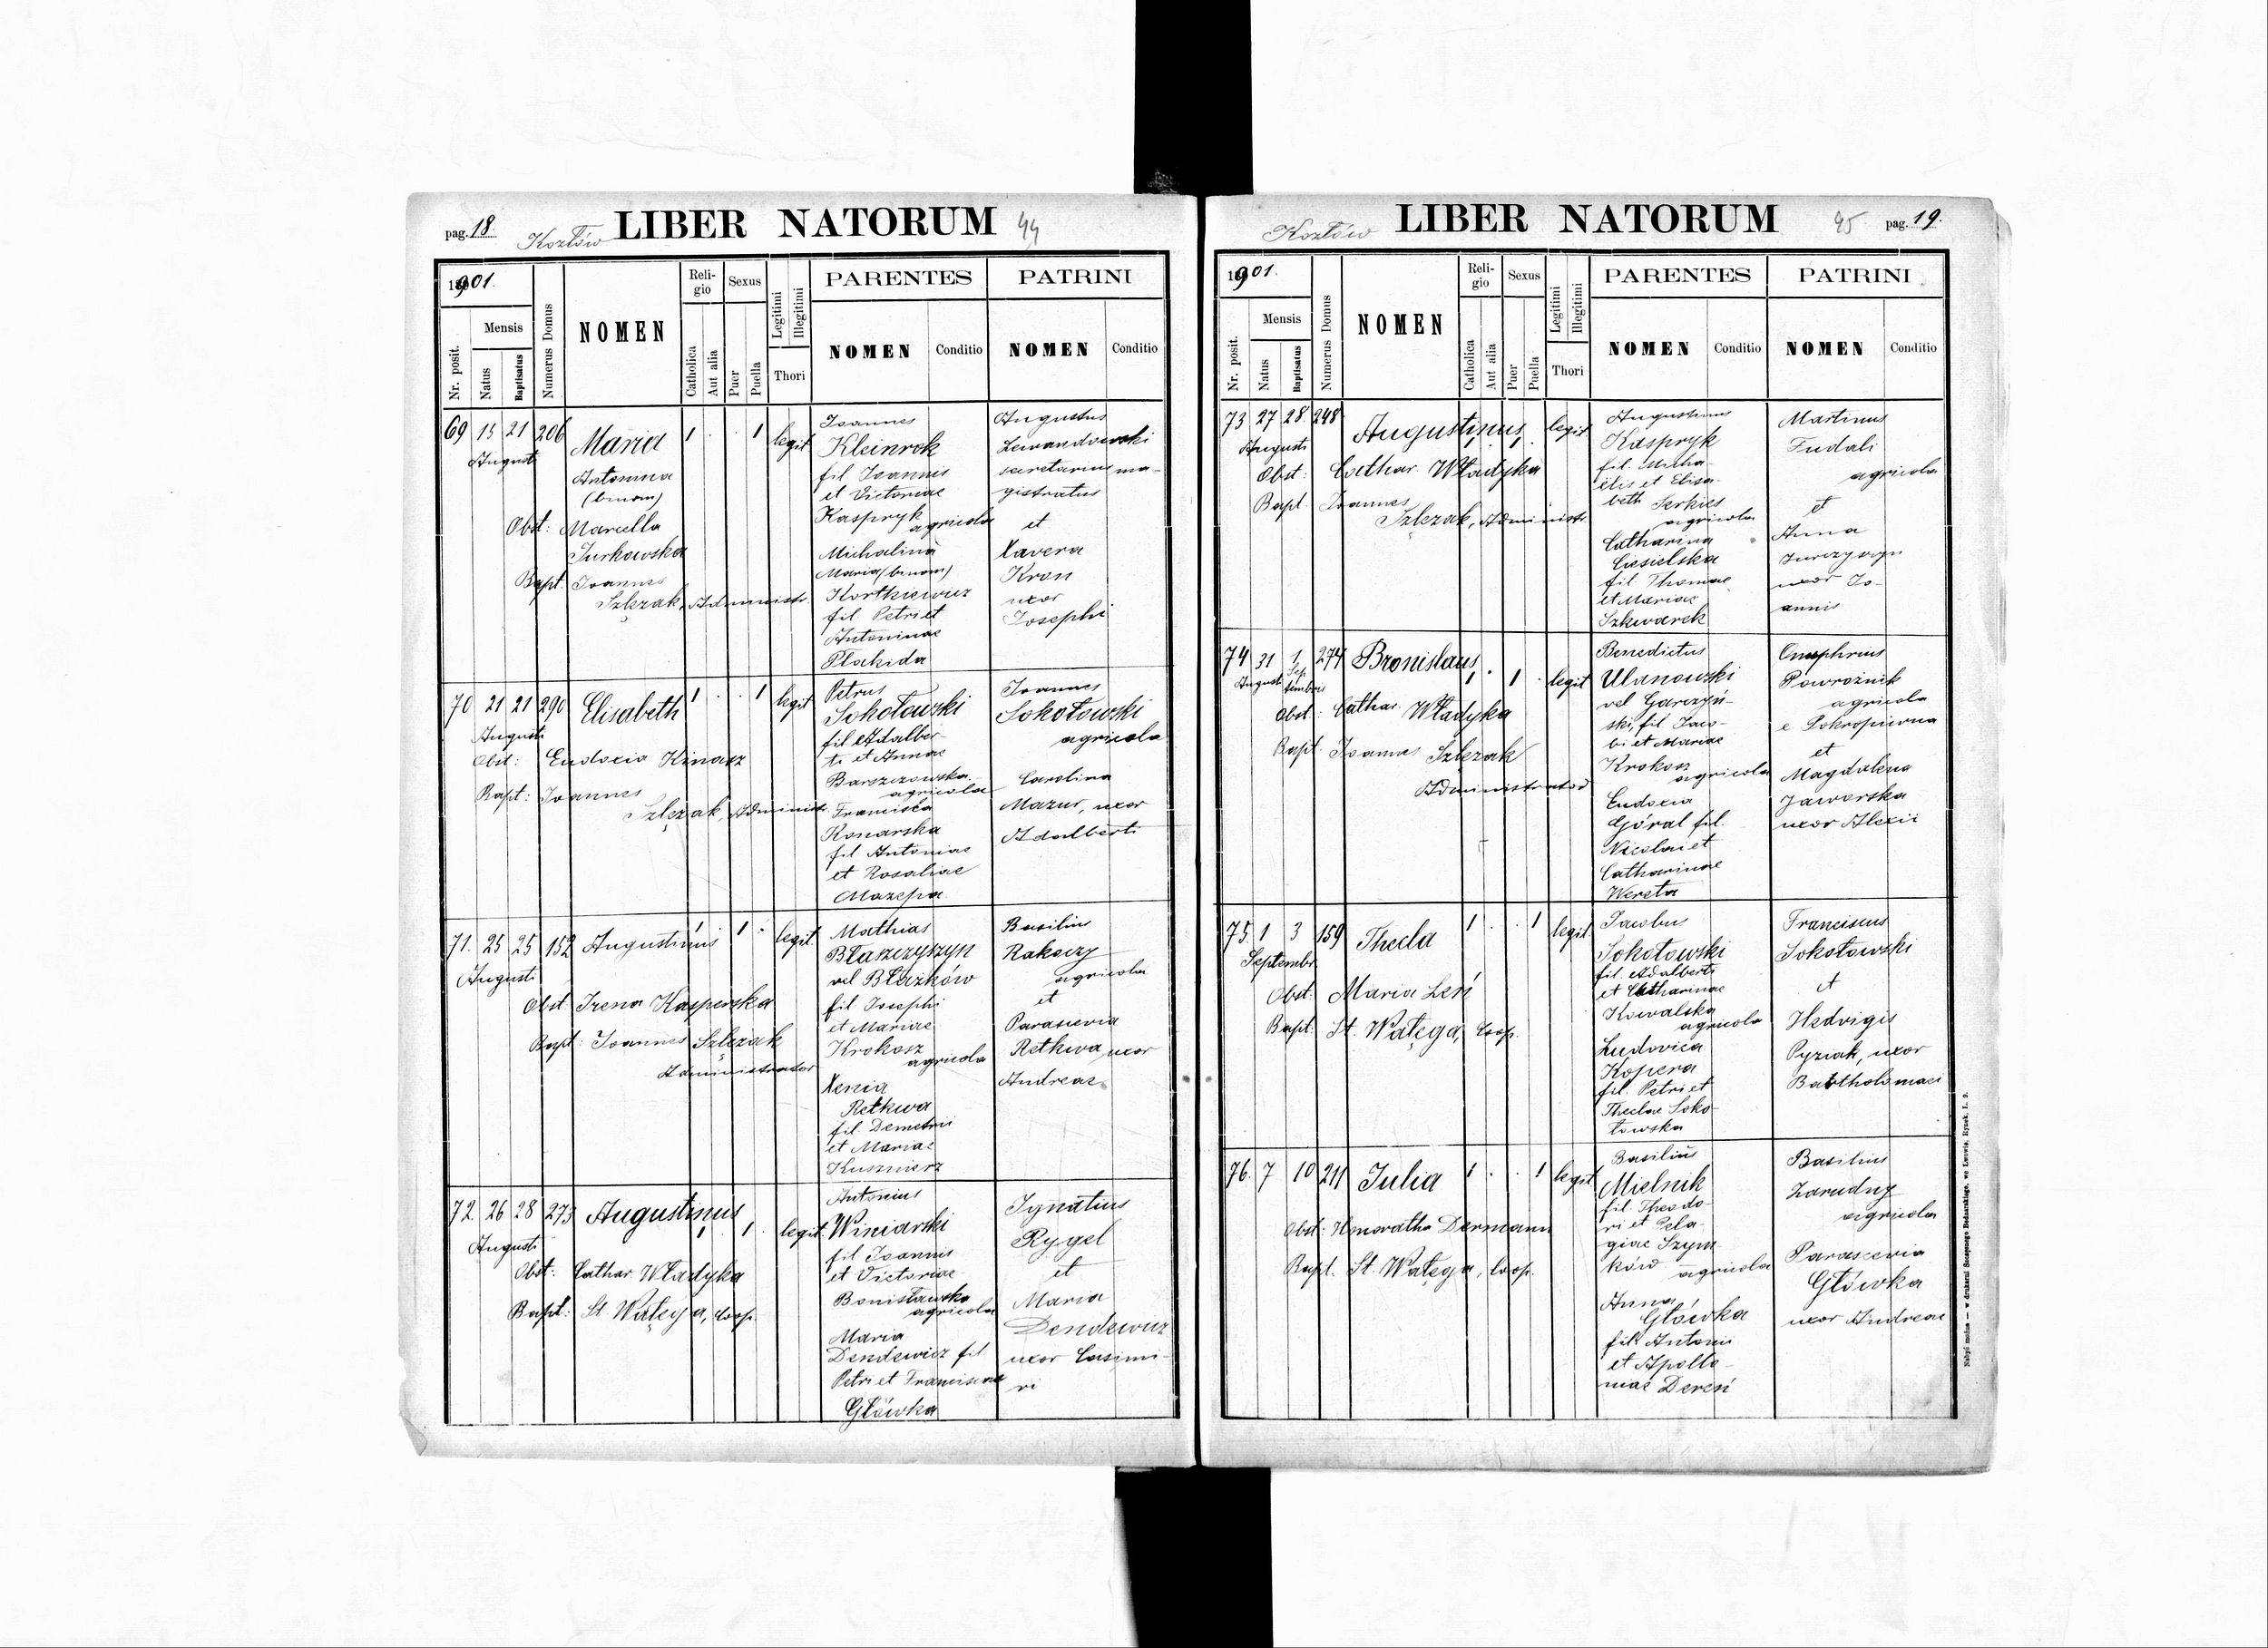 pag. 18. Kozłów LIBER NATORUM 44
1901.
Nr. posit.
Mensis
Natus
Baptisatus
Numerus Domus
NOMEN
Religio
Catholica
Aut alia
Sexus
Puer
Puella
Legitimi
Illegitimi
Thori
PARENTES
NOMEN
Conditio
PATRINI
NOMEN
Conditio
69 15 21 206
Augusti
Maria
Antonina
(binom)
Obst: Marcella
Jurkowska
Bapt: Joannes
Szlęzak, Administr.
1 . . 1 legit
Joannes
Kleinrok
fil Joannis
et Victoriae
Kaspryk
agricola
Michalina
Maria (binom)
Kortkiewicz
fil Petri et
Antoninae
Płakida
Augustus
Lewandowski
secretarius ma-
gistratus
et
Xavera
Kron
uxor
Josephi
70 21 21 290
Augusti
Elisabeth
Obst: Eudoxia Kinasz
Bapt: Joannes
Szlęzak, Administr.
1 . . 1 legit
Petrus
Sokołowski
fil Adalber-
ti et Annae
Barszczowska
agricola
Francisca
Konarska
fil Antoniae
et Rosaliae
Mazepa
Joannes
Sokołowski
agricola
Carolina
Mazur, uxor
Adalberti
71. 25 25 152
Augusti
Augustinus
Obst: Irena Kasperska
Bapt: Joannes Szlęzak
Administrator
1 . 1 . legit.
Mathias
Błaszczyszyn
vel Błażków
fil Josephi
et Mariae
Krokosz
agricola
Xenia
Retkwa
fil. Demetrii
et Mariae
Kusznierz
Basilius
Rakoczy
agricola
et
Parascevia
Retkwa, uxor
Andreae
72. 26 28 273
Augusti
Augustinus
Obst: Cathar. Władyka
Bapt: St. Wałęga, Coop.
1 . 1 . legit.
Antonius
Winiarski
fil Joannis
et Victoriae
Bonisławska
agricola
Maria
Dendewicz fil.
Petri et Franciscae
Główka
Ignatius
Rygel
et
Maria
Dendewicz
uxor Casimi-
ri
Kozłów LIBER NATORUM 45 pag. 19.
1901.
Nr. posit.
Mensis
Natus
Baptisatus
Numerus Domus
NOMEN
Religio
Catholica
Aut alia
Sexus
Puer
Puella
Legitimi
Illegitimi
Thori
PARENTES
NOMEN
Conditio
PATRINI
NOMEN
Conditio
73 27 28 248
Augusti
Augustinus
Obst: Cathar. Władyka
Bapt. Joannes
Szlęzak, Administr.
1 . 1 . legit
Augustinus
Kaspryk
fil. Micha-
elis et Elisa-
beth Serkies
agricola
Catharina
Ciesielska
fil Thomae
et Mariae
Szkwarek
Martinus
Fudali
agricola
et
Anna
uxor Jo-
annis
74 31 1 274
Augusti Septembris
Bronislaus
Obst: Cathar. Władyka
Bapt. Joannes Szlęzak
Administrator
1 . 1 . legit
Benedictus
Ulanowski
vel Garczyń-
ski, fil Jaco-
bi et Mariae
Krokosz
agricola
Eudoxia
Góral fil.
Nicolai et
Catharinae
Wereta
Onuphrius
Powroźnik
agricola
e Pokropiwna
et
Magdalena
Jaworska
uxor Alexii
75. 1 3 159
Septembr.
Thecla
Obst: Maria Leń
Bapt: St. Wałęga, Coop.
1 . . 1 legit
Jacobus
Sokołowski
fil. Adalberti
et Catharinae
Kowalska
agricola
Ludovica
Kopera
fil. Petri et
Theclae Soko-
łowska
Franciscus
Sokołowski
et
Hedvigis
Pyziak, uxor
Bartholomaei
76. 7 10 211
Julia
Obst: Honoratha Dermann
Bapt. St. Wałęga, Coop.
1 . . 1 legit
Basilius
Mielnik
fil. Theodo-
ri et Pela-
giae Szym
ków agricola
Anna
Główka
fil Antonii
et Apollo-
niae Dereń
Basilius
Zarudny
agricola
Parascevia
Główka
uxor Andreae